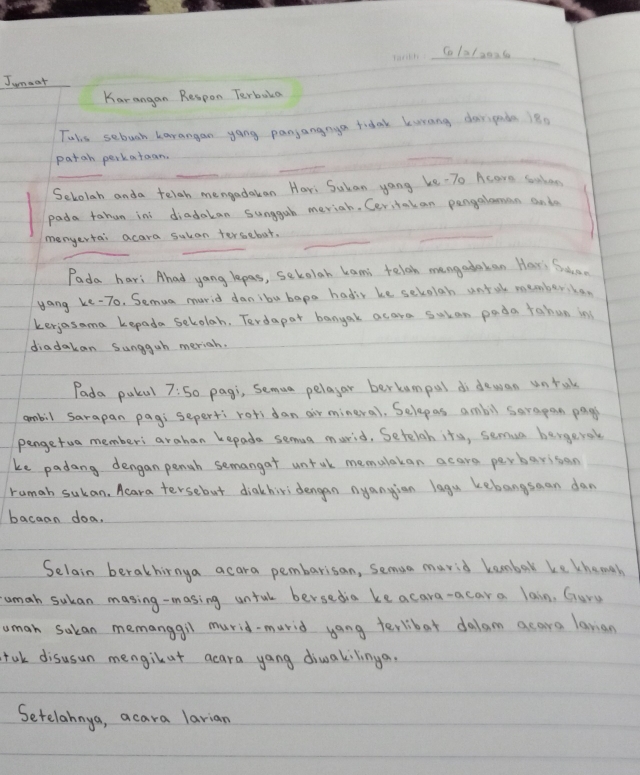 Tarikh: 6/2/2026
Jumaat
Karangan Respon Terbuka
Tulis sebuah karangan yang panjangnya tidak kurang daripada 180
patah perkataan.
Sekolah anda telah mengadakan Hari Sukan yang ke-70 Acara sukan
pada tahun ini diadakan sungguh meriah. Ceritakan pengalaman anda
menyertai acara sukan tersebut.
Pada hari Ahad yang lepas, sekolah kami telah mengadakan Hari Sukan
yang ke-70. Semua murid dan ibu bapa hadir ke sekolah untuk memberikan
kerjasama kepada sekolah. Terdapat banyak acara sukan pada tahun ini
diadakan sungguh meriah.
Pada pukul 7:50 pagi, semua pelajar berkumpul di dewan untuk
ambil sarapan pagi seperti roti dan air mineral. Selepas ambil sarapan pagi
pengetua memberi arahan kepada semua murid. Setelah itu, semua bergerak
ke padang dengan penuh semangat untuk memulakan acara perbarisan
rumah sukan. Acara tersebut diakhiri dengan nyanyian lagu kebangsaan dan
bacaan doa.
Selain berakhirnya acara pembarisan, semua murid kembali ke khemah
rumah sukan masing-masing untuk bersedia ke acara-acara lain. Guru
umah sukan memanggil murid-murid yang terlibat dalam acara larian
tuk disusun mengikut acara yang diwakilinya.
Setelahnya, acara larian